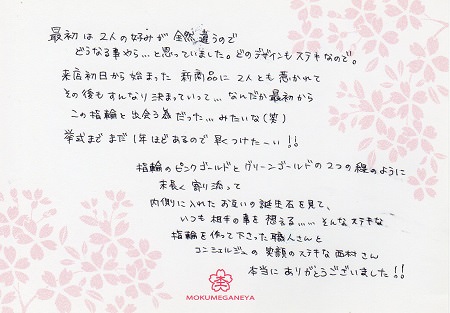 最初は2人の好みが全然違うので
どうなる事やら…と思っていました。どのデザインもステキなので。
来店初日から始まった新商品に2人とも惹かれて
その後もすんなり決まっていって…なんだか最初から
この指輪と出会う為だった…みたいな(笑)
挙式までまだ1年ほどあるので早くつけたーい!!
指輪のピンクゴールドとグリーンゴールドの2つの線のように
末長く寄り添って
内側に入れたお互いの誕生石を見て、
いつも相手の事を想える……そんなステキな
指輪を作って下さった職人さんと
コンシェルジュの笑顔のステキな西村さん
本当にありがとうございました!!
MOKUMEGANEYA